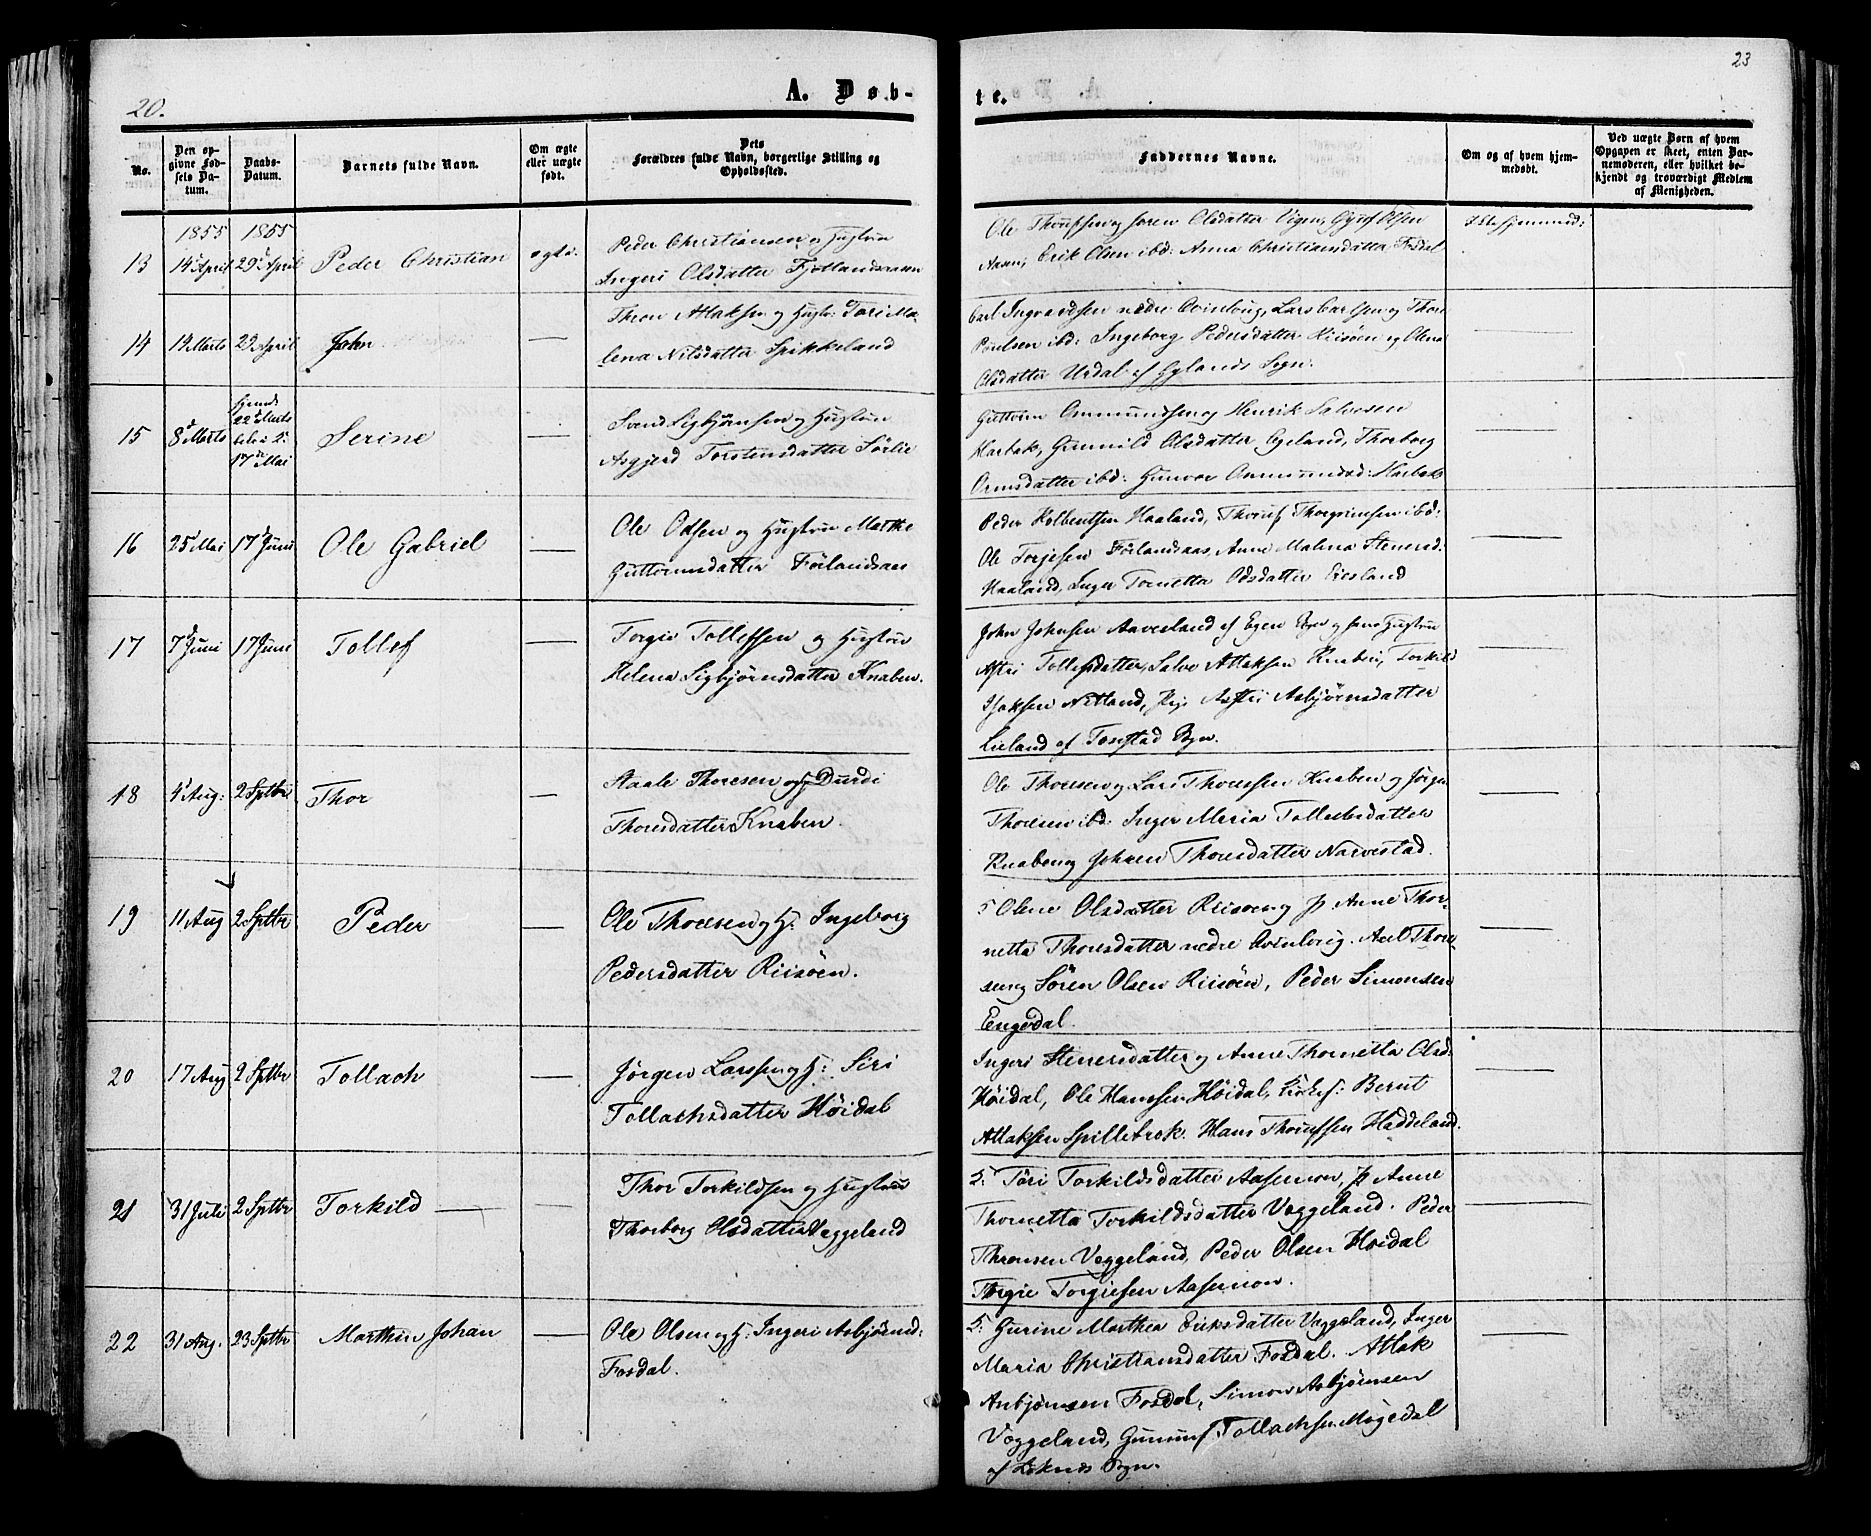 20.
A. Døb-
No.
Den op-
givne Fød-
sels Da-
tum.
Daabs-
Datum.
Barnets fulde Navn.
Om ægte
eller uægte
født.
Dets
Forældres fulde Navn, borgerlige Stilling og
Opholdssted.
1855 1855
13 14 April 29 April Peder Christian ægte:
Peder Christiansen og Hustru
Ingeri Olsdatter Fjotlandsaasen
14 14 Marts 29 April John —
Thron Atlaksen og Hustr: Tori Ma-
lena Nilsdatter Spikkeland
15 8 Marts
22 Marts
17 Mai
Serine —
Svend Sigbjörnsen og Hustru
Asgjerd Torstensdatter Sörlie
16 25 Mai 17 Juni Ole Gabriel —
Ole Odsen og Hustru Marthe
Guttormsdatter Förlandsaas
17 7 Juni 17 Juni Tollef —
Torgie Tollefsen og Hustru
Helena Sigbjørnsdatter Knaben.
18 4 Aug: 2 Sptbr Thor —
Staale Thoresen og Durdi
Thoresdatter Knaben.
19 11 Aug 2 Sptbr Peder —
Ole Thoresen og H: Ingeborg
Pedersdatter Riisöen.
20 17 Aug 2 Sptbr Tollach —
Jörgen Larssen og H: Siri
Tollachsdatter Höidal
21 31 Juli 2 Sptbr Torkild — —
Thor Torkildsen og Hustru
Thorborg Olsdatter Veggeland
22 31 Aug. 23 Sptbr Marthin Johan —
Ole Olsen og H: Ingeri Asbjørnsd:
Fosdal.
23
te.
Faddernes Navne.
Om og af hvem hjem-
medøbt.
Ved uægte Børn af hvem
Opgaven er skeet, enten Bar-
nemoderen, eller hvilket be-
kjendt og troværdigt Medlem
af Menigheden.
Olsdatter
Aasen, Erik Olsen ibd: Anna Christiansdatter Fosdal
Carl nedre Qvinlaug, Lars Carlsen og Thore
Poulsen ibd: Ingeborg Pedersdatter Riisöen og Olena
Olsdatter Urdal af Gylands Sogn. —
Guttorm Ommundsen og Henrik Salvesen
Harbak, Gunnild Olsdatter Egeland, Thorborg
Ormsdatter ibd: Gunvor Ommundsd: Harbak —
Peder Haaland, Thorgrimsen ibd:
Ole Torjesen Förlandsaas, Anne Malena Stenersd:
Haaland, Inger Tometta Odsdatter Eiesland —
John Johnsen Aavesland af Egen og hans Hustru
Astri Tollefsdatter, Salve Atlaksen Knaben, Torkild
Netland, Pig. Astri Asbjørnsdatter
Lieland af Tonstad Sgn. —
Ole Thoresen og Lars Thoressen Knaben og Jörgen
Thoresen ibd: Inger Maria Tollefsdatter
Knaben og Thoresdatter Narvestad. —
Olene Olsdatter Riisöen og p. Anne Thor-
netta Thoresdatter nedre Qvinlaug. Axel Thore-
sen og Sören Olsen Riisöen, Peder Simonsen
Engedal. —
Ingeri Stenersdatter og Anne Thornetta Olsd:
Höidal, Ole Hanssen Höidal, Bernt
Atlaksen Spilletrok. Hans Haddeland. —
Töri Torkildsdatter Aasemoen, p Anne
Thornetta Torkildsdatter Veggeland. Peder
Thronsen Veggeland, Peder Olsen Höidal
Torgie Torgiesen Aasemoen. —
Gurine Marthea Eriksdatter Veggeland, Inger
Maria Christiansdatter Fosdal. Atlak
Asbjørnsen Fosdal, Simon Asbjørnsen
Veggeland, Tollachsen Mygedal
af Sgn. —